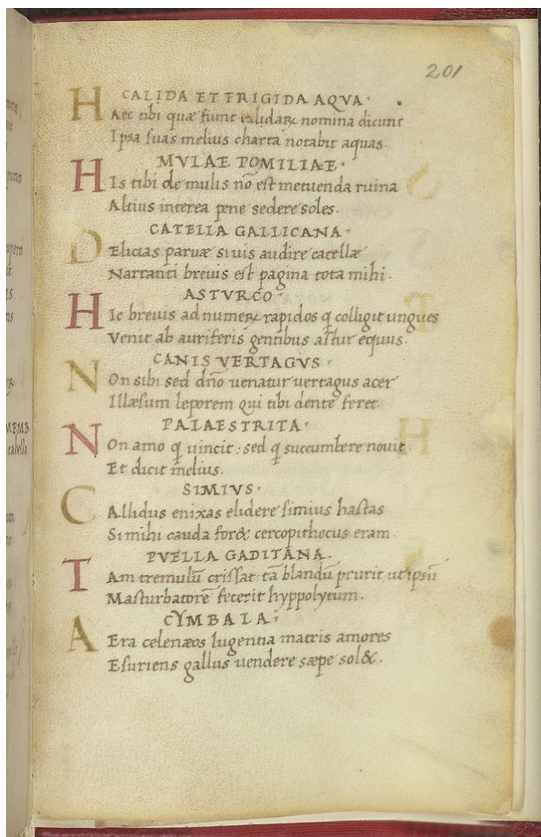 201
CALIDA ET FRIGIDA AQVA·
HAec tibi quæ fiunt calidaꝝ nomina dicunt
Ipsa suas melius charta notabit aquas.
MVLAE POMILIAE·
HIs tibi de mulis nō est metuenda ruina
Altius interea pene sedere soles.
CATELLA GALLICANA·
DElicias paruæ si uis audire catellæ
Narranti breuis est pagina tota mihi.
ASTVRCO
HIc breuis ad numeꝝ rapidos q̄ colligit ungues
Venit ab auriferis gentibus astur equus.
CANIS VERTAGVS·
NOn sibi sed dn̄o uenatur uertagus acer
Illæsum leporem qui tibi dente feret.
PALAESTRITA·
NOn amo q̄ uincit: sed q̄ succumbere nouit
Et dicit melius.
SIMIVS·
CAllidus enixas elidere simius hastas
Si mihi cauda for& cercopithecus eram.
PVELLA GADITANA·
TAm tremulū crissat tā blandū prurit ut ipsū
Masturbatorē fecerit hyppolytum.
CYMBALA·
AEra celenæos lugentia matris amores
Esuriens gallus uendere sæpe sol&.